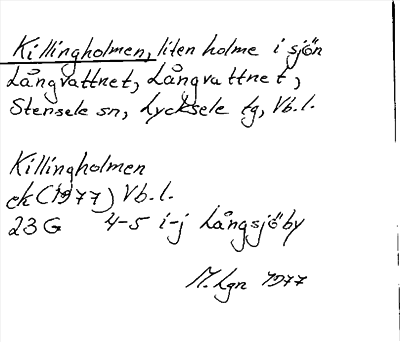 Killingholmen, liten holme i sjön
Långvattnet, Långvattnet,
Stensele sn, Lycksele tg, Vb.l.
Killingholmen
ek (1977) Vb.l.
23 G 4-5 i-j Långsjöby
M. Lgn 1977